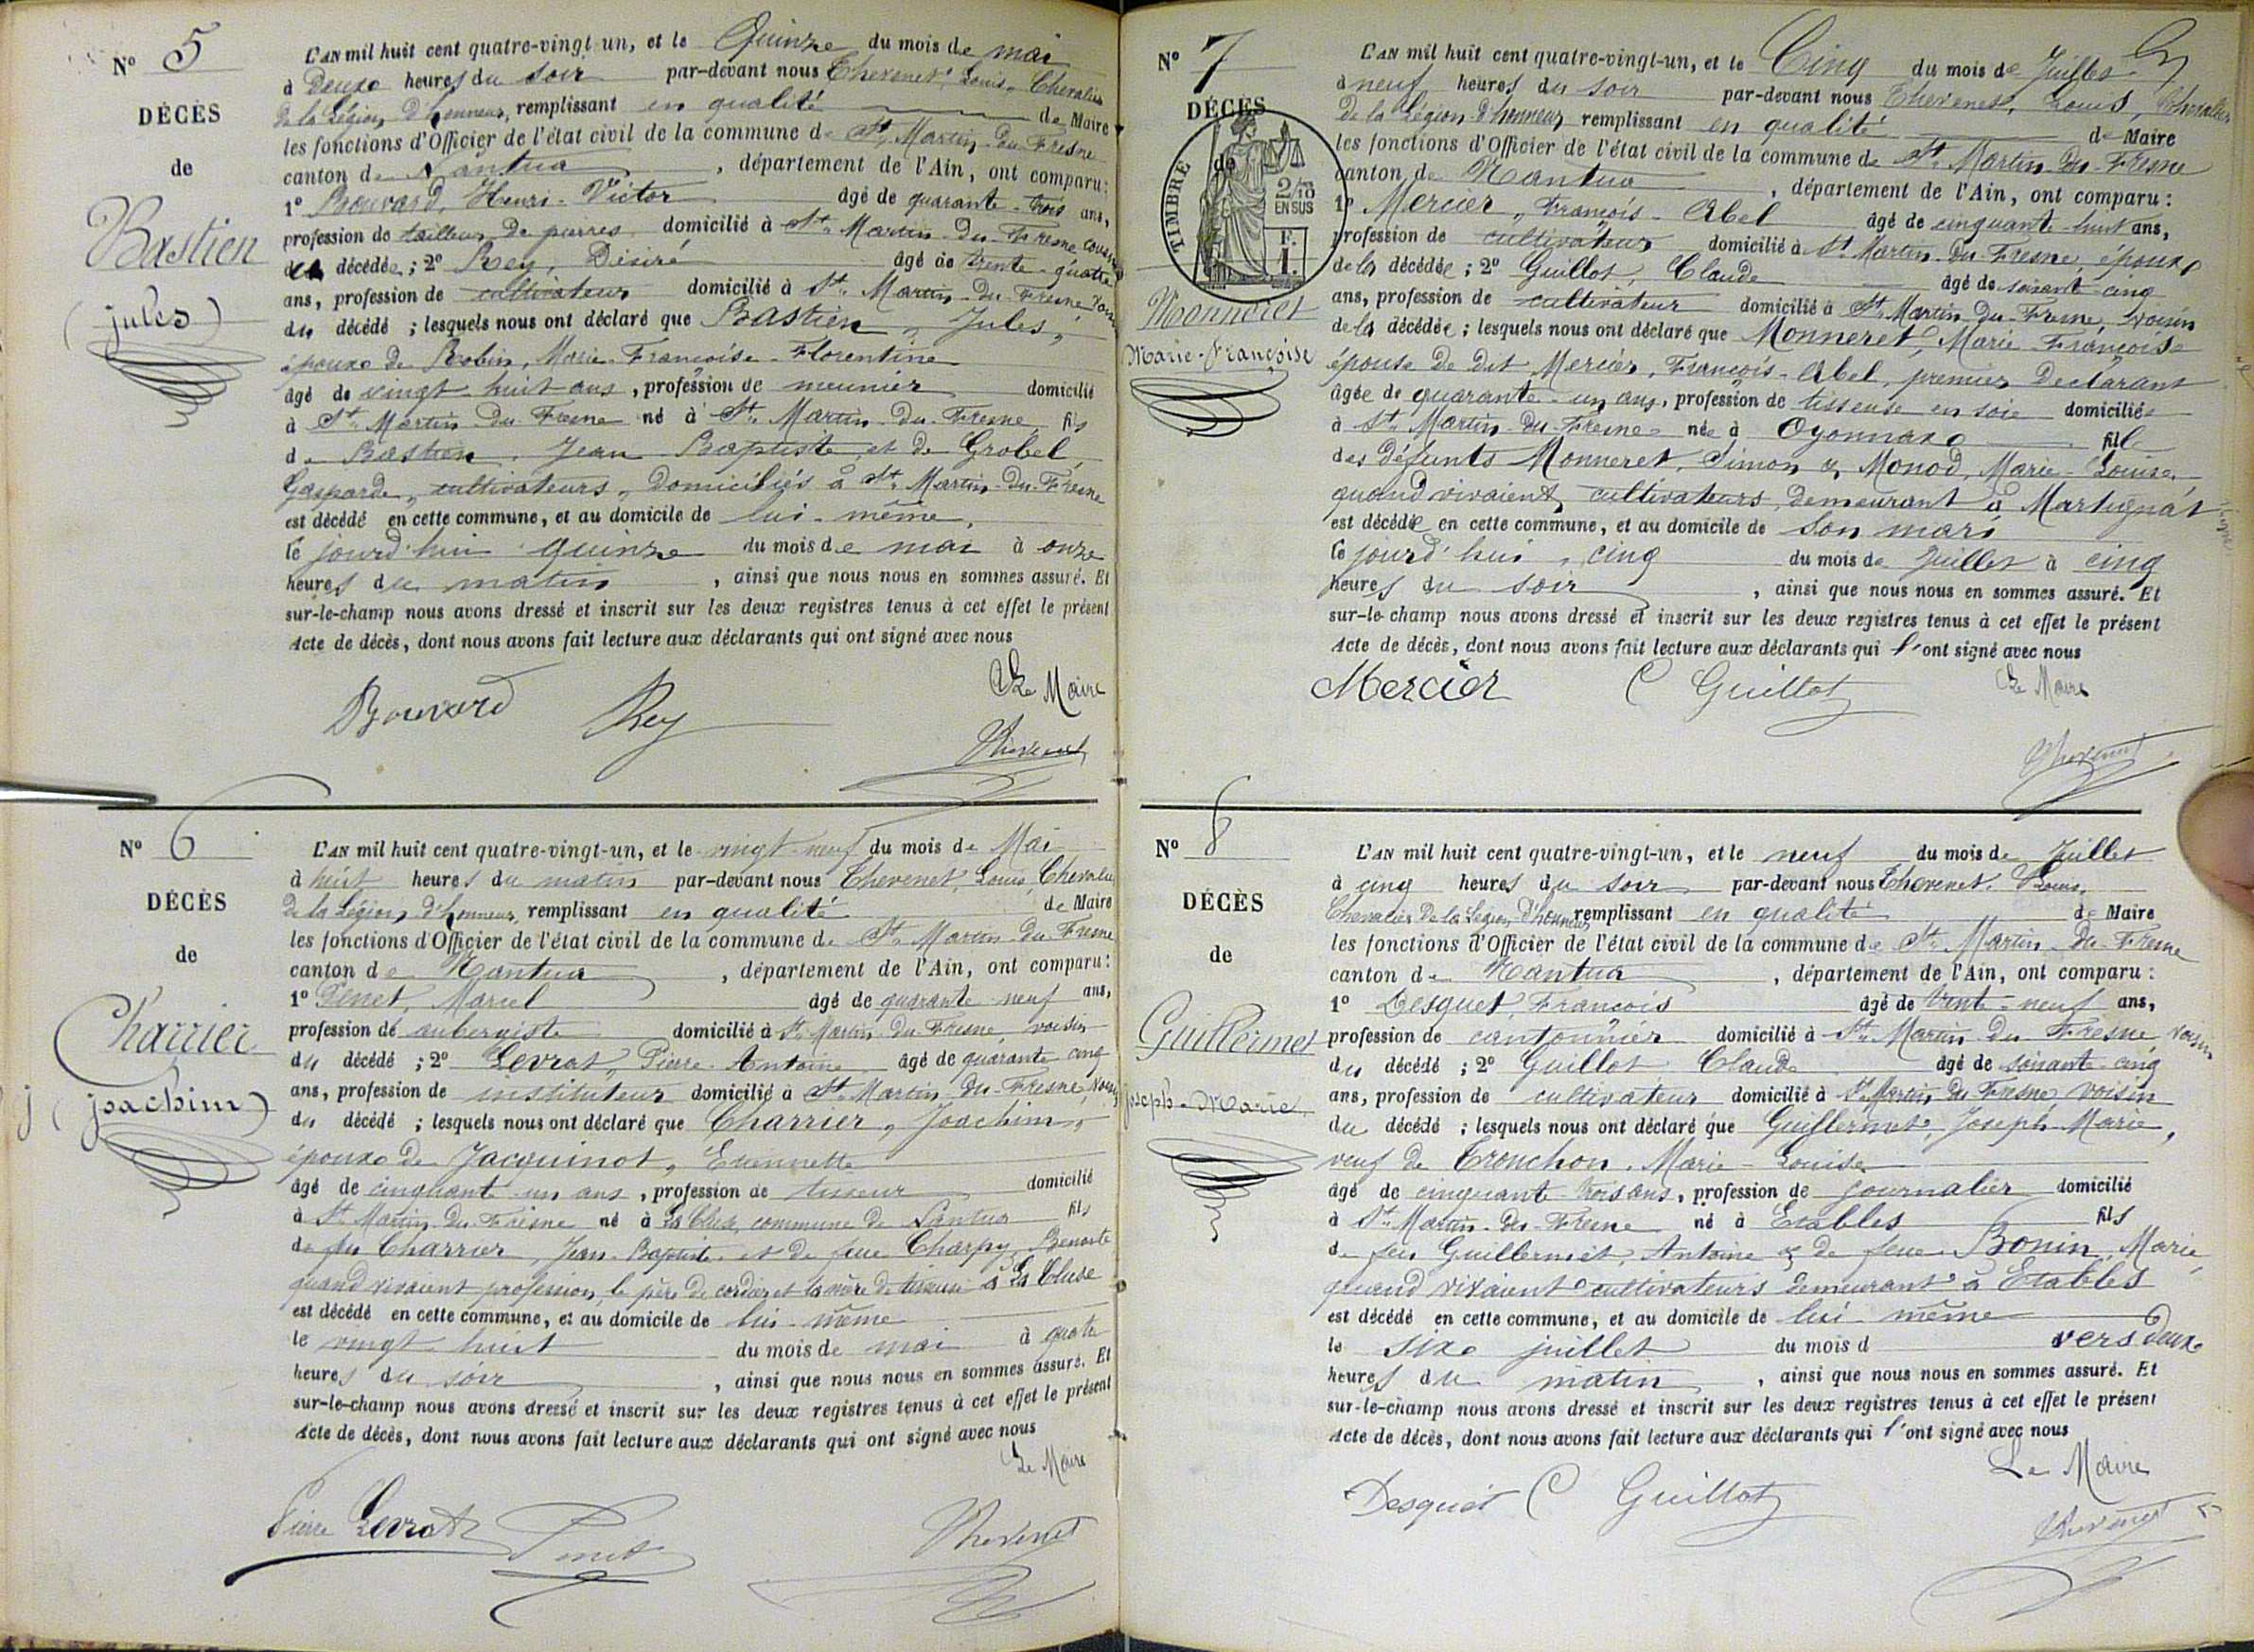 N° 5
DÉCÈS
de
Bastien
(jules)
L'AN mil huit cent quatre-vingt-un, et le Quinze du mois de mai
à Deux heures du soir par-devant nous Thevenet, Louis, Chevalier
de la Légion d'honneur, remplissant en qualité de Maire
les fonctions d'Officier de l'état civil de la commune de St Martin-du-Fresne
canton de Nantua, département de l'Ain, ont comparu:
1° Bouvard, Henri-Victor âgé de quarante-trois ans,
profession de tailleur de pierres domicilié à St Martin-du-Fresne cousin
du décédé; 2° Rey, Désiré âgé de trente-quatre
ans, profession de cultivateur domicilié à St Martin-du-Fresne
du décédé; lesquels nous ont déclaré que Bastien, Jules,
époux de Robin, Marie-Françoise-Florentine
âgé de vingt-huit ans, profession de meunier domicilié
à St Martin-du-Fresne né à St Martin-du-Fresne fils
de Bastien, Jean-Baptiste et de Grobel,
Gasparde, cultivateurs, domiciliés à St Martin-du-Fresne
est décédé en cette commune, et au domicile de lui-même,
le jourd'hui quinze du mois de mai à onze
heures du matin, ainsi que nous nous en sommes assuré. Et
sur-le-champ nous avons dressé et inscrit sur les deux registres tenus à cet effet le présent
Acte de décès, dont nous avons fait lecture aux déclarants qui ont signé avec nous
Le Maire
Bouvard Rey
Thevenet
N° 6
DÉCÈS
de
Charrier
(joachim)
L'AN mil huit cent quatre-vingt-un, et le vingt-neuf du mois de Mai
à huit heures du matin par-devant nous Thevenet, Louis, Chevalier
de la Légion d'honneur, remplissant en qualité de Maire
les fonctions d'Officier de l'état civil de la commune de St Martin-du-Fresne
canton de Nantua, département de l'Ain, ont comparu:
1° Penet, Marcel âgé de quarante-neuf ans,
profession de aubergiste domicilié à St Martin-du-Fresne, voisin
du décédé; 2° Levrat, Pierre-Antoine âgé de quarante-cinq
ans, profession de instituteur domicilié à St Martin-du-Fresne, voisin
du décédé; lesquels nous ont déclaré que Charrier, Joachim,
époux de Jacquinot, Etiennette
âgé de cinquante-un ans, profession de tisseur domicilié
à St Martin-du-Fresne né à La Cluse, commune de Nantua fils
de feu Charrier, Jean-Baptiste et de feue Charpy, Benoite
quand vivaient profession, le père de cordier et la mère de tisseuse à La Cluse
est décédé en cette commune, et au domicile de lui-même
le vingt-huit du mois de mai à quatre
heures du soir, ainsi que nous nous en sommes assuré. Et
sur-le-champ nous avons dressé et inscrit sur les deux registres tenus à cet effet le présent
Acte de décès, dont nous avons fait lecture aux déclarants qui ont signé avec nous
Le Maire
Pierre Levrat Penet Thevenet
N° 7
DÉCÈS
de
TIMBRE
2/10
EN SUS
F.
1.
Monneret
Marie-Françoise
L'AN mil huit cent quatre-vingt-un, et le Cinq du mois de Juillet
à neuf heures du soir par-devant nous Thevenet, Louis, Chevalier
de la Légion d'honneur remplissant en qualité de Maire
les fonctions d'Officier de l'état civil de la commune de St Martin-du-Fresne
canton de Nantua, département de l'Ain, ont comparu:
1° Mercier, François-Abel âgé de cinquante-huit ans,
profession de cultivateur domicilié à St Martin-du-Fresne, époux
de la décédée; 2° Guillot, Claude âgé de soixante-cinq
ans, profession de cultivateur domicilié à St Martin-du-Fresne, voisin
de la décédée; lesquels nous ont déclaré que Monneret, Marie-Françoise
épouse de dit Mercier, François-Abel, premier déclarant
âgée de quarante-un ans, profession de tisseuse en soie domiciliée
à St Martin-du-Fresne née à Oyonnax fille
des défunts Monneret, Simon & Monod, Marie-Louise,
quand vivaient cultivateurs demeurant à Martignat
est décédée en cette commune, et au domicile de son mari
le jourd'hui, cinq du mois de Juillet à cinq
heures du soir, ainsi que nous nous en sommes assuré. Et
sur-le-champ nous avons dressé et inscrit sur les deux registres tenus à cet effet le présent
Acte de décès, dont nous avons fait lecture aux déclarants qui l'ont signé avec nous
Mercier C Guillot Le Maire
Thevenet
N° 8
DÉCÈS
de
Guillermet
joseph-Marie
L'AN mil huit cent quatre-vingt-un, et le neuf du mois de Juillet
à cinq heures du soir par-devant nous Thevenet, Louis,
Chevalier de la Légion d'honneur remplissant en qualité de Maire
les fonctions d'Officier de l'état civil de la commune de St Martin-du-Fresne
canton de Nantua, département de l'Ain, ont comparu:
1° Desquet, François âgé de trente-neuf ans,
profession de cantonnier domicilié à St Martin-du-Fresne voisin
du décédé; 2° Guillot Claude âgé de soixante-cinq
ans, profession de cultivateur domicilié à St Martin-du-Fresne voisin
du décédé; lesquels nous ont déclaré que Guillermet, Joseph-Marie,
veuf de Tronchon, Marie-Louise
âgé de cinquante-trois ans, profession de journalier domicilié
à St Martin-du-Fresne né à Etables fils
de feu Guillermet, Antoine & de feue Bonin, Marie,
quand vivaient cultivateurs demeurant à Etables
est décédé en cette commune, et au domicile de lui-même
le six juillet du mois d vers deux
heures du matin, ainsi que nous nous en sommes assuré. Et
sur-le-champ nous avons dressé et inscrit sur les deux registres tenus à cet effet le présent
Acte de décès, dont nous avons fait lecture aux déclarants qui l'ont signé avec nous
Le Maire
Desquet C Guillot
Thevenet